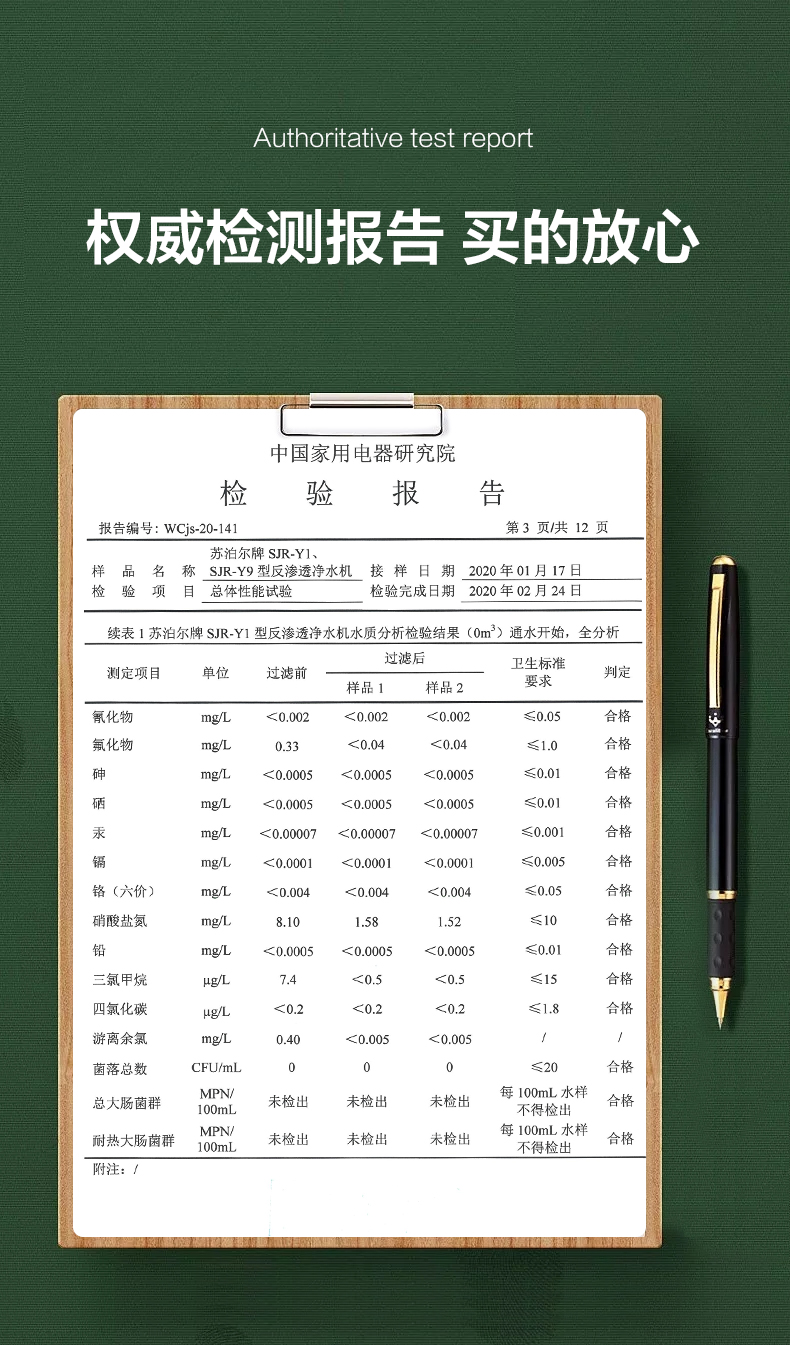 Authoritative test report
权威检测报告 买的放心
中国家用电器研究院
检 验 报 告
报告编号: WCjs-20-141 第 3 页/共 12 页
苏泊尔牌 SJR-Y1、
样 品 名 称 SJR-Y9 型反渗透净水机 接 样 日 期 2020 年 01 月 17 日
检 验 项 目 总体性能试验 检验完成日期 2020 年 02 月 24 日
续表 1 苏泊尔牌 SJR-Y1 型反渗透净水机水质分析检验结果（0m³）通水开始，全分析
测定项目 单位 过滤前 过滤后 卫生标准要求 判定
样品 1 样品 2
氰化物 mg/L ＜0.002 ＜0.002 ＜0.002 ≤0.05 合格
氟化物 mg/L 0.33 ＜0.04 ＜0.04 ≤1.0 合格
砷 mg/L ＜0.0005 ＜0.0005 ＜0.0005 ≤0.01 合格
硒 mg/L ＜0.0005 ＜0.0005 ＜0.0005 ≤0.01 合格
汞 mg/L ＜0.00007 ＜0.00007 ＜0.00007 ≤0.001 合格
镉 mg/L ＜0.0001 ＜0.0001 ＜0.0001 ≤0.005 合格
铬（六价） mg/L ＜0.004 ＜0.004 ＜0.004 ≤0.05 合格
硝酸盐氮 mg/L 8.10 1.58 1.52 ≤10 合格
铅 mg/L ＜0.0005 ＜0.0005 ＜0.0005 ≤0.01 合格
三氯甲烷 μg/L 7.4 ＜0.5 ＜0.5 ≤15 合格
四氯化碳 μg/L ＜0.2 ＜0.2 ＜0.2 ≤1.8 合格
游离余氯 mg/L 0.40 ＜0.005 ＜0.005 / /
菌落总数 CFU/mL 0 0 0 ≤20 合格
总大肠菌群 MPN/100mL 未检出 未检出 未检出 每 100mL 水样不得检出 合格
耐热大肠菌群 MPN/100mL 未检出 未检出 未检出 每 100mL 水样不得检出 合格
附注：/